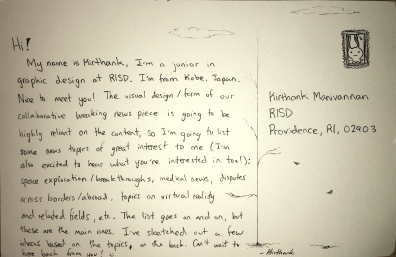 Hi!
My name is Kirthank, I'm a junior in
graphic design at RISD. I'm from Kobe, Japan.
Nice to meet you! The visual design/form of our
collaborative breaking news piece is going to be
highly reliant on the content, so I'm going to list
some news topics of great interest to me (I'm
also excited to hear what you're interested in too!):
space exploration/breakthroughs, medical news, disputes
across borders/abroad, topics on virtual reality
and related fields, etc. The list goes on and on, but
these are the main ones. I've sketched out a few
ideas based on the topics, on the back. Can't wait to
hear back from you!
- Kirthank
Kirthank Manivannan
RISD
Providence, RI, 02903